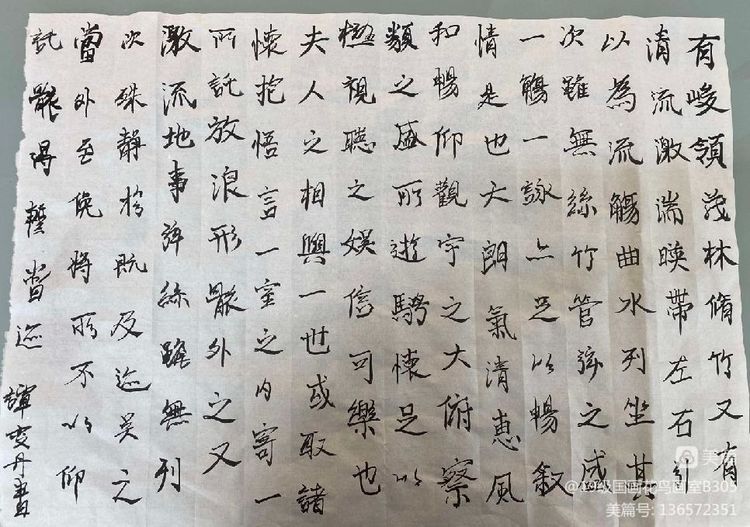 有峻領茂林脩竹又有
清流激湍暎帶左右引
以為流觴曲水列坐其
次雖無絲竹管弦之盛
一觴一詠亦足以暢叙
情是也天朗氣清惠風
和暢仰觀宇之大俯察
類之盛所遊騁懷足以
極視聽之娛信可樂也
夫人之相與一世或取諸
懷抱悟言一室之内寄一
所託放浪形骸外之又
激流地事絲雖無列
次殊静於既及迩之
當外至俛將所不以仰
託骸得暫當迩
丹書
美篇
国画花鸟画室B305
美篇号: 136572351